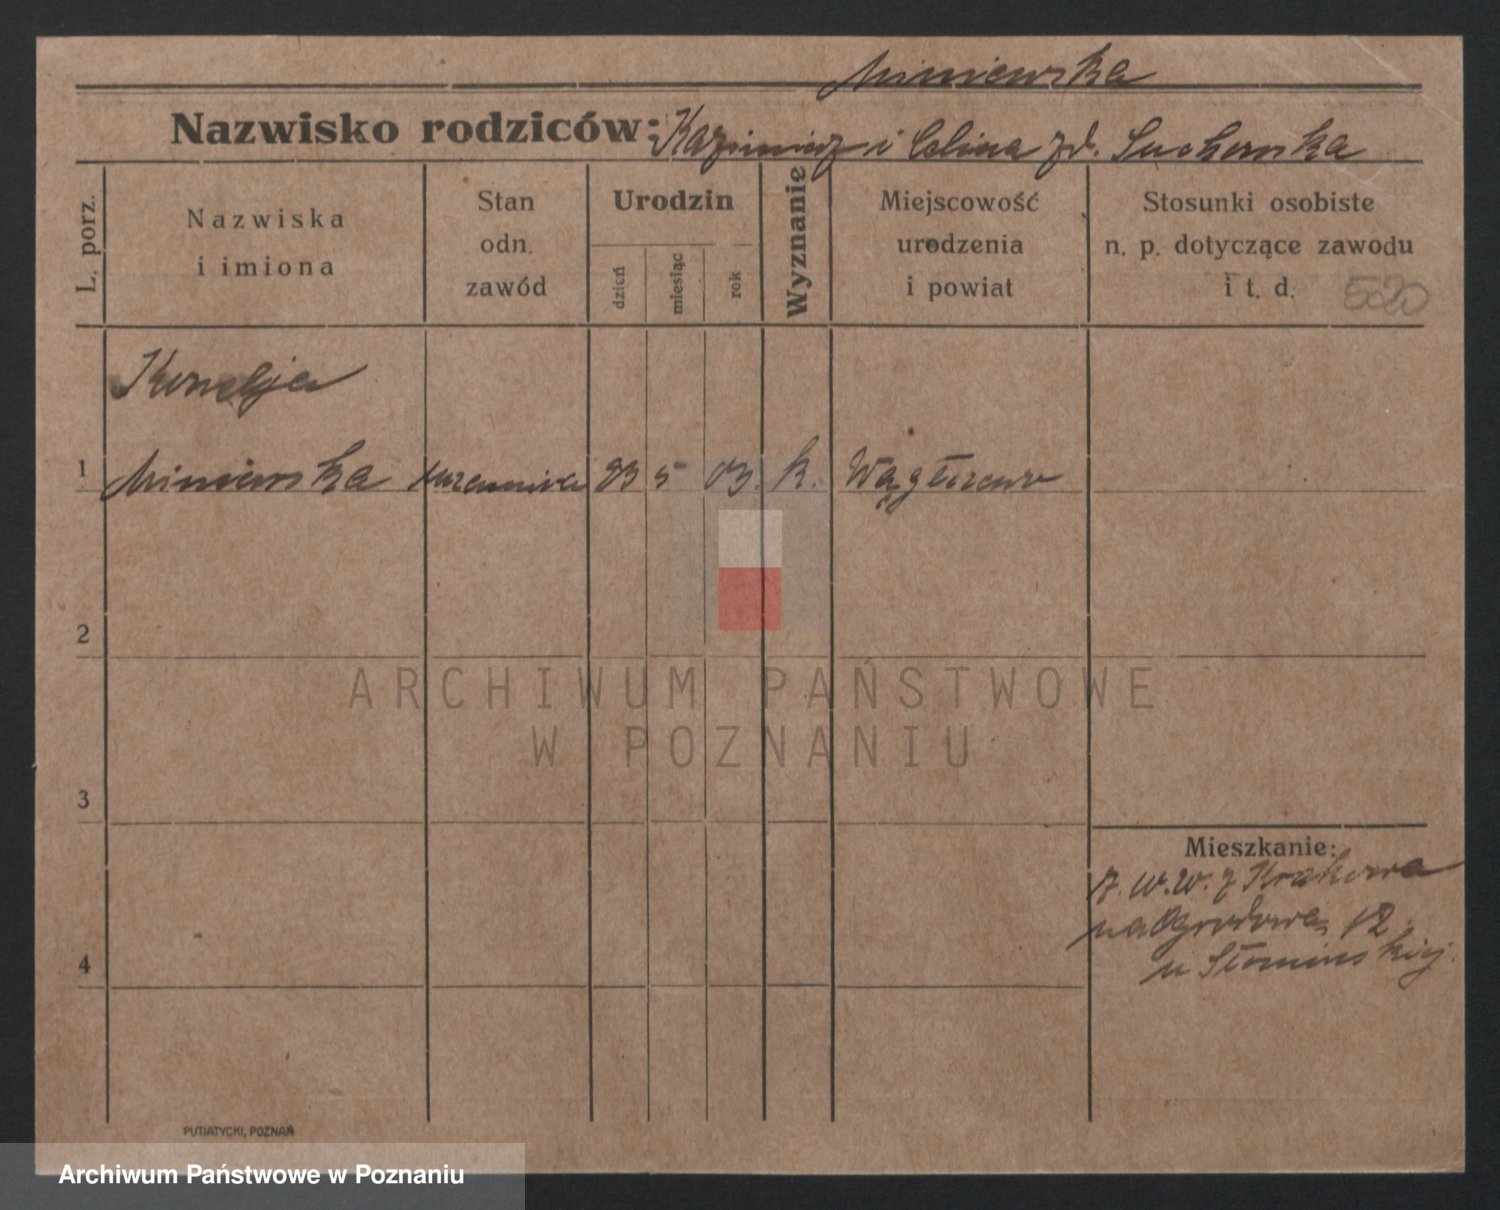 Miniewska
Nazwisko rodziców: Kazimierz i Celina zd. Suchorska
L. porz.
Nazwiska
i imiona
Stan
odn.
zawód
Urodzin
dzień
miesiąc
rok
Wyznanie
Miejscowość
urodzenia
i powiat
Stosunki osobiste
n. p. dotyczące zawodu
i t. d.
520
Kornelja
1 Miniewska 23 5 03. k.
2
3
4
Mieszkanie:
z Krakowa
na Ogrodowa 12
u Słomińskiej.
ARCHIWUM PAŃSTWOWE
W POZNANIU
PUTIATYCKI, POZNAŃ
Archiwum Państwowe w Poznaniu